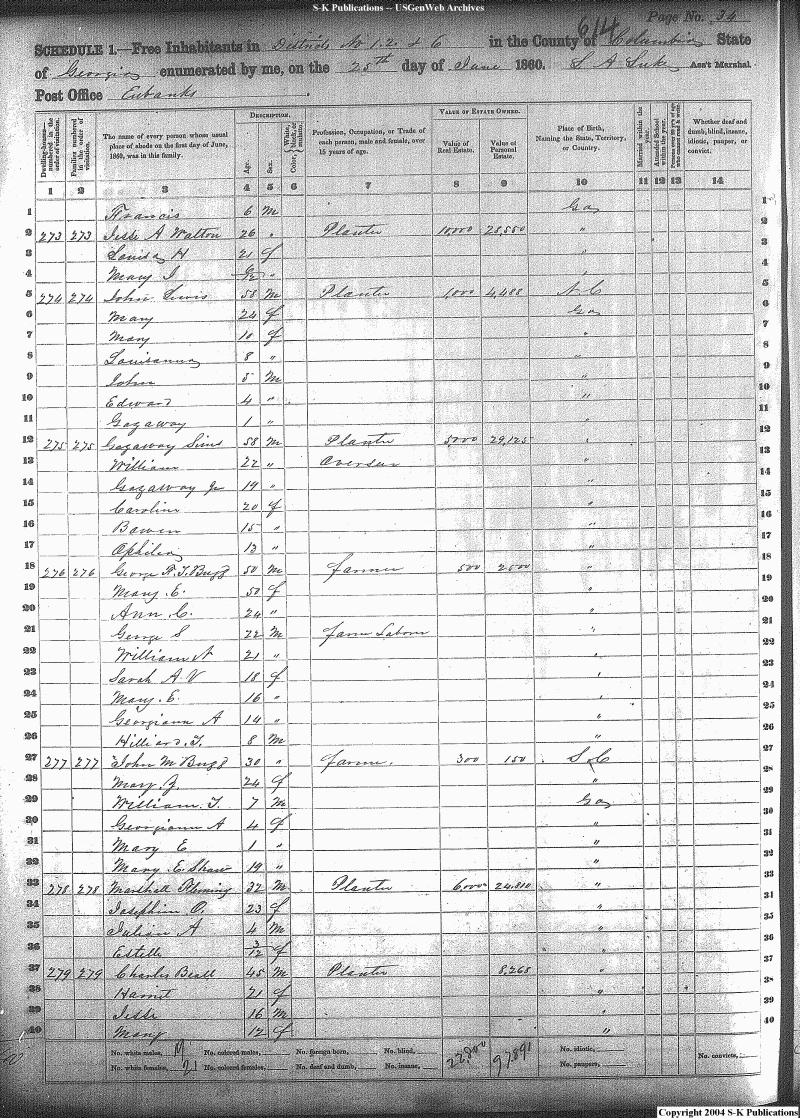 S-K Publications -- USGenWeb Archives
Page No. 34
614
SCHEDULE 1.—Free Inhabitants in Districts No 1. 2. & 6 in the County of Columbia State
of Georgia enumerated by me, on the 25th day of June 1860. Ass't Marshal.
Post Office Eubanks
DESCRIPTION. VALUE OF ESTATE OWNED.
Dwelling-houses—numbered in the order of visitation. Families numbered in the order of visitation. The name of every person whose usual place of abode on the first day of June, 1860, was in this family. Age. Sex. Color, White, black, or mulatto. Profession, Occupation, or Trade of each person, male and female, over 15 years of age. Value of Real Estate. Value of Personal Estate. Place of Birth, Naming the State, Territory, or Country. Married within the year. Attended School within the year. Whether deaf and dumb, blind, insane, idiotic, pauper, or convict.
1 2 3 4 5 6 7 8 9 10 11 12 13 14
1 Francis 6 M Ga 1
2 273 273 Jesse A Walton 26 " Planter 10,000 " 2
3 Louisa H 21 f " 3
4 Mary I " 4
5 274 274 John Lewis 58 M Planter 1,000 4,488 N C 5
6 Mary 24 f Ga 6
7 Mary 10 f " 7
8 Louisanna 8 " " 8
9 John 5 M " 9
10 Edward 4 " " 10
11 Gazaway 1 " " 11
12 275 275 Gazaway Sims 58 M Planter 5000 29,125 " 12
13 William 22 " Overseer " 13
14 Gazaway Jr 19 " " 14
15 Caroline 20 f " 15
16 Bowen 15 " " 16
17 13 " " 17
18 276 276 George Bugg 50 M farmer 500 2500 " 18
19 Mary. E. 50 f " 19
20 Ann C. 24 " " 20
21 George S 22 M farm Laborer " 21
22 William A 21 " " 22
23 Sarah A V 18 f " 23
24 Mary. E. 16 " " 24
25 Georgiann A 14 " " 25
26 Hilliard. T. 8 M " 26
27 277 277 John M Bugg 30 " farmer. 300 150 S C 27
28 Mary. Z. 24 f " 28
29 William. T. 7 M Ga 29
30 Georgiann A 4 f " 30
31 Mary E 1 " " 31
32 Mary E. Shaw 19 " " 32
33 278 278 Marshall Fleming 32 M Planter 6000 24,810 " 33
34 Josephine O. 23 f " 34
35 Julian A 4 M " 35
36 Estelle 3/12 f " 36
37 279 279 Charles Beall 45 M Planter 8,265 " 37
38 Harriet 21 f " 38
39 Jesse 16 M " 39
40 Mary 12 f " 40
No. white males, No. colored males, No. foreign born, No. blind, 22,800 97,891 No. idiotic,
No. white females, 21 No. colored females, No. deaf and dumb, No. insane, No. paupers, No. convicts,
Copyright 2004 S-K Publications